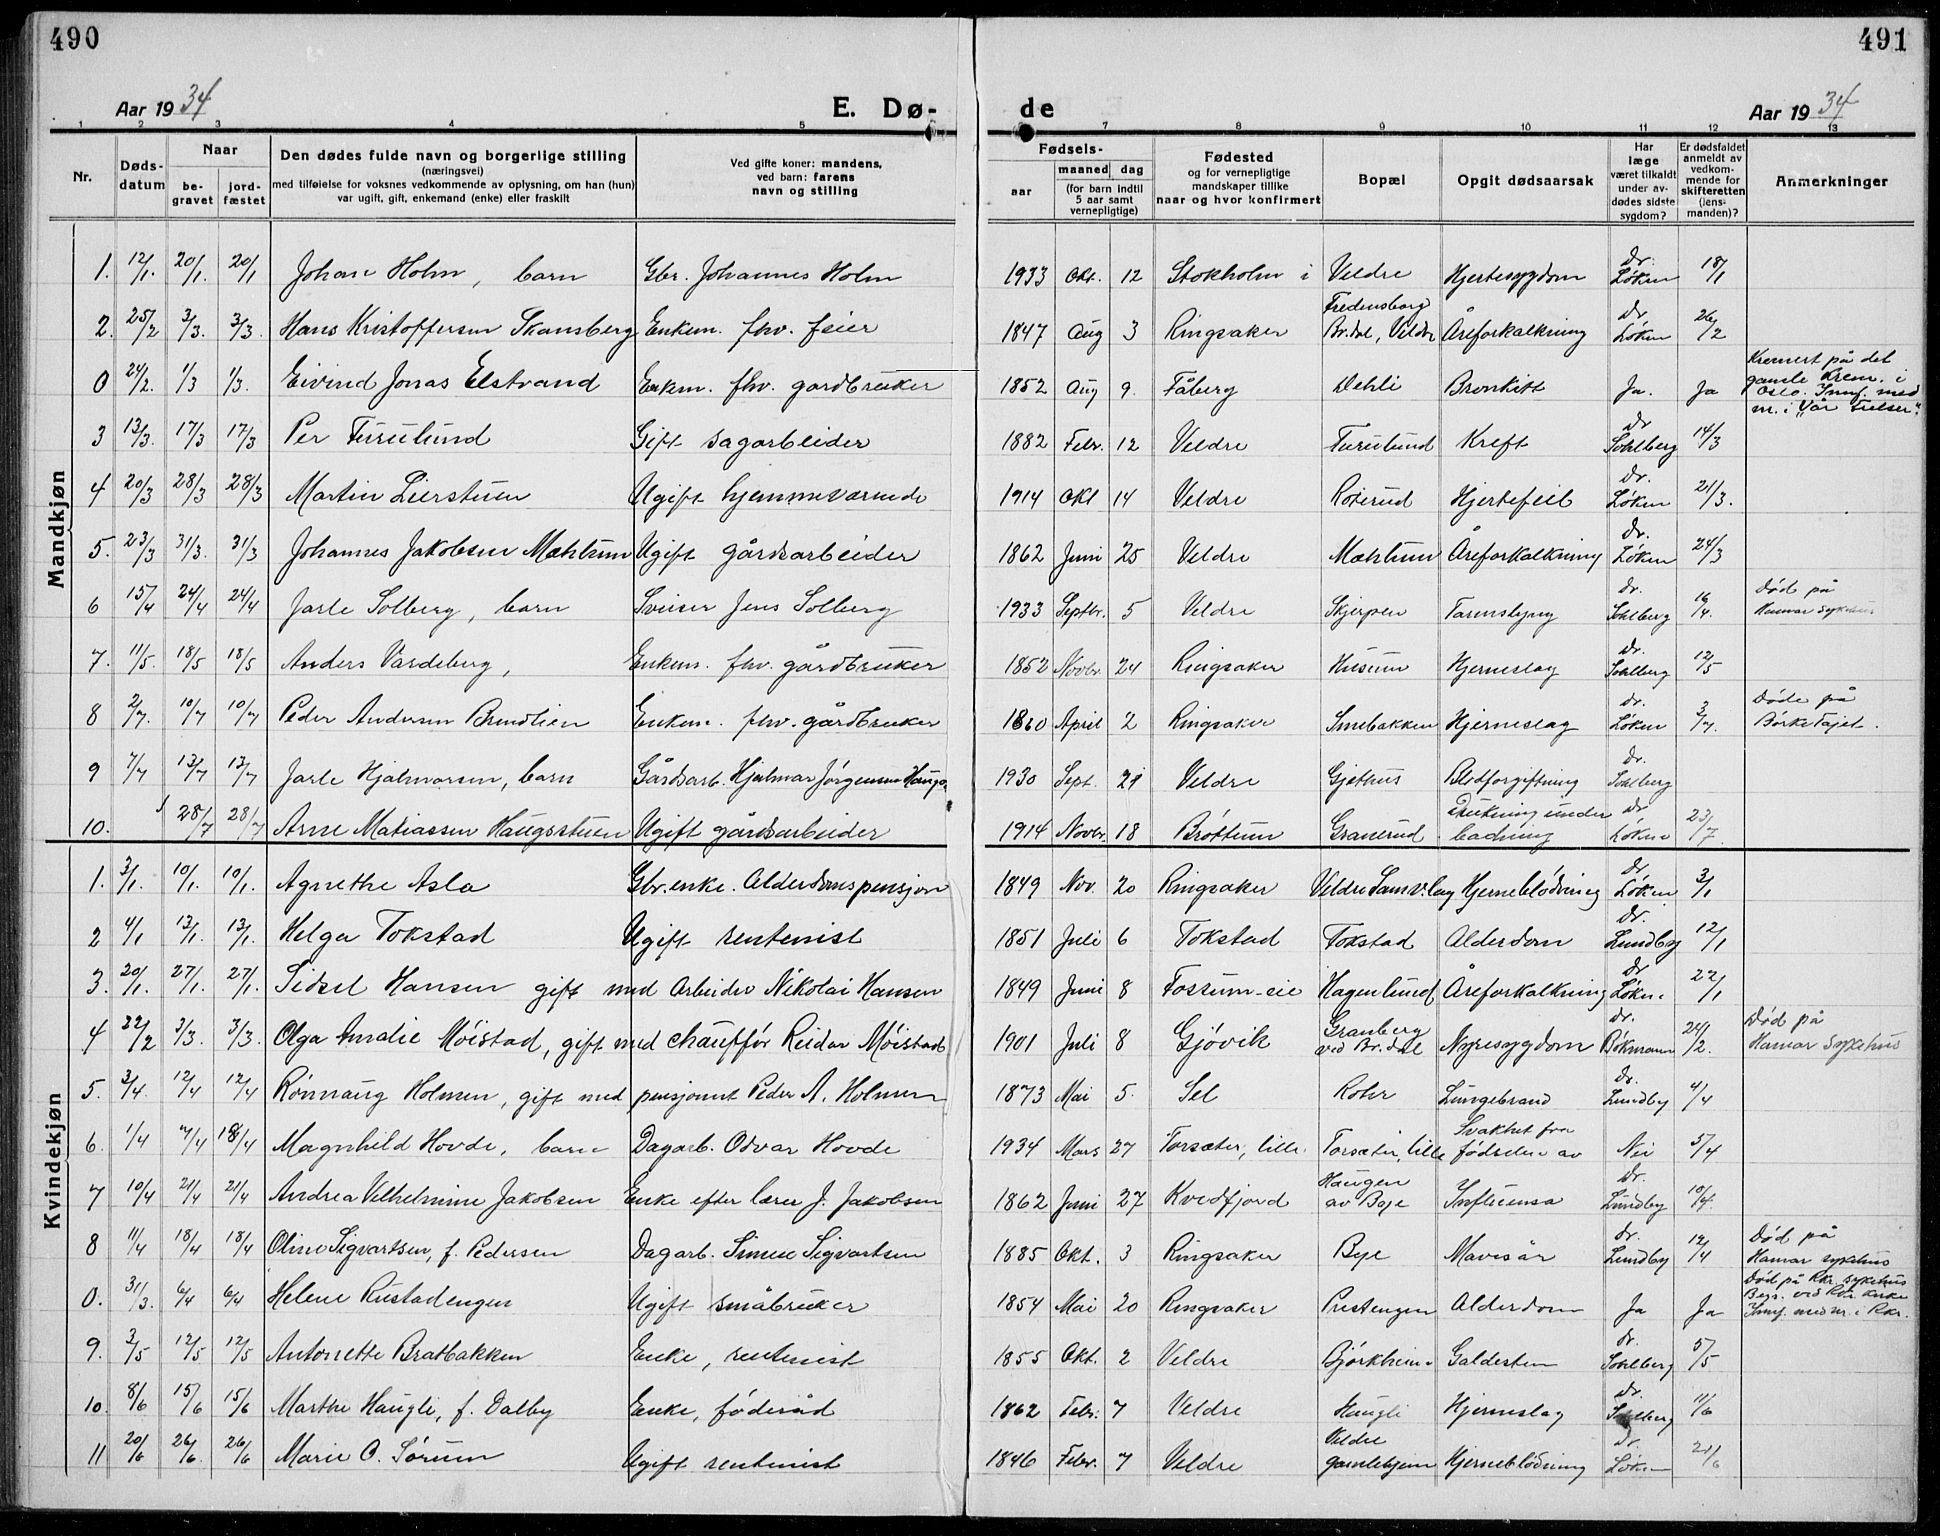 490
491
Aar 1934
E. Dø-
de
Aar 1934
1 2 3 4 5 7 8 9 10 11 12 13
Nr.
Døds-
datum
Naar
be-
gravet
jord-
fæstet
Den dødes fulde navn og borgerlige stilling
(næringsvei)
med tilføielse for voksnes vedkommende av oplysning, om han (hun)
var ugift, gift, enkemand (enke) eller fraskilt
Ved gifte koner: mandens,
ved barn: farens
navn og stilling
Fødsels-
aar
maaned dag
(for barn indtil
5 aar samt
vernepligtige)
Fødested
og for vernepligtige
mandskaper tillike
naar og hvor konfirmert
Bopæl
Opgit dødsaarsak
Har
læge
været tilkaldt
under av-
dødes sidste
sygdom?
Er dødsfaldet
anmeldt av
vedkom-
mende for
skifteretten
(lens-
manden)?
Anmerkninger
Mandkjøn
1. 12/1. 20/1. 20/1 Johan Holm, barn Gbr. Johannes Holm 1933 Okt. 12 Stokholm i Veldre Hjertesygdom Dr. Løken 18/1
2. 25/2 3/3. 3/3. Hans Kristoffersen Skansberg Enkem. fhv. feier 1847 Aug 3 Ringsaker Fredensborg Br.dal, Veldre Åreforkalkning Dr Løken 26/2
0 24/2. 1/3 1/3. Eivind Jonas Elstrand Enkm. fhv. gardbruker 1852 Aug 9. Fåberg Dehli Bronkitt Ja. Ja Kremert på det
gamle Krem. i
Oslo. Innf. med
nr. i "Vår Frelser".
3 13/3. 17/3 17/3 Per Furulund Gift sagarbeider 1882 Febr. 12 Veldre Furulund Kreft Dr Sohlberg 14/3
4 20/3 28/3 28/3 Martin Lierstuen Ugift hjemmeværende 1914 Okt 14 Veldre Roterud Hjertefeil Dr. Løken 21/3.
5. 23/3 31/3. 31/3 Johannes Jakobsen Mæhlum Ugift gårdsarbeider 1862 Juni 25 Veldre Mæhlum Åreforkalkning Dr. Løken 24/3
6 15/4 24/4 24/4 Jarle Solberg, barn Sveiser Jens Solberg 1933 Septbr. 5 Veldre Skjerpen Tarmslyng Dr. Sohlberg 16/4. Død på
Hamar sykehus
7. 11/5. 18/5 18/5 Anders Vardeberg, Enkem. fhv. gårdbruker 1852 Novbr. 24 Ringsaker Husum Hjerneslag Dr. Sohlberg 12/5
8 2/7. 10/7 10/7 Peder Andersen Brendlien Enkem. fhv. gårdbruker 1860 April 2 Ringsaker Smebakken Hjerneslag Dr. Løken 3/7. Døde på
Børkefajet.
9 7/7 13/7 13/7 Jarle Hjalmarsen, barn Gårdsarb. Hjalmar Jørgensen 1930 Sept. 21 Veldre Gjethus Blodforgiftning Dr. Sohlberg
10. 28/7 28/7 Arne Matiassen Haugsstuen Ugift gårdsarbeider 1914 Novbr. 18 Brøttum Granerud Drukning under badning Dr Løken 23/7.
Kvindekjøn
1. 3/1. 10/1. 10/1. Agnethe Asla Gbr.enke. Alderdomspensjon 1849 Nov. 20 Ringsaker Veldre Samv.lag Hjerneblødning Dr. Løken 3/1
2 4/1 13/1. 13/1. Helga Tokstad Ugift rentenist 1851 Juli 6 Tokstad Tokstad Alderdom Dr. Lundby 12/1
3. 20/1. 27/1. 27/1. Sidsel Hansen gift med Arbeider Nikolai Hansen 1849 Juni 8 Fossum-eie Hagenlund Åreforkalkning Dr Løken 22/1
4 22/2 3/3. 3/3. Olga Amalie Møistad, gift med chauffør Reidar Møistad 1901 Juli 8 Gjøvik Granberg ved Br.dal Nyresygdom Dr. Bökmann 24/2. Død på
Hamar Sykehus
5. 3/4. 12/4 12/4 Rønnaug Holmen, gift med pensjonist Peder A. Holmen 1873 Mai 5. Sel Rohr Lungebrand Dr. Lundby 4/4
6. 1/4 7/4 18/4 Magnhild Hovde, barn Dagarb. Odvar Hovde 1934 Mars 27 Torsæter, lille Torsæter, lille Svakhet fra fødselen av Nei 5/4
7 10/4 21/4 21/4 Andrea Vilhelmine Jakobsen Enke efter lærer J. Jakobsen 1862 Juni 27 Kvedfjord Haugen av Bye Influensa Dr. Lundby 10/4.
8 11/4 18/4 18/4 Oline Sigvartsen, f. Pedersen Dagarb. Simen Sigvartsen 1885 Okt. 3 Ringsaker Bye Mavesår Dr. Lundby 12/4 Død på
Hamar sykehus
0. 31/3. 6/4 6/4 Helene Rustadengen Ugift småbruker 1854 Mai 20 Ringsaker Prestengen Alderdom Ja Ja Død på Rkr. sykehus
Begr. ved Rkr. kirke
Innf. med nr. i Rkr.
9. 3/5 12/5 12/5 Antonette Bratbakken Enke, rentenist 1855 Okt. 2 Veldre Bjørkheim Galdesten Dr. Sohlberg 5/5
10. 8/6 15/6 15/6 Marthe Haugli, f. Dalby Enke, føderåd 1862 Febr. 7 Veldre Haugli Hjerneslag Dr. Sohlberg 11/6
11 20/6 26/6. 26/6 Marie O. Sørum Ugift rentenist 1846 Febr. 7 Veldre Veldre gamlehjem Hjerneblødning Dr. Løken 21/6